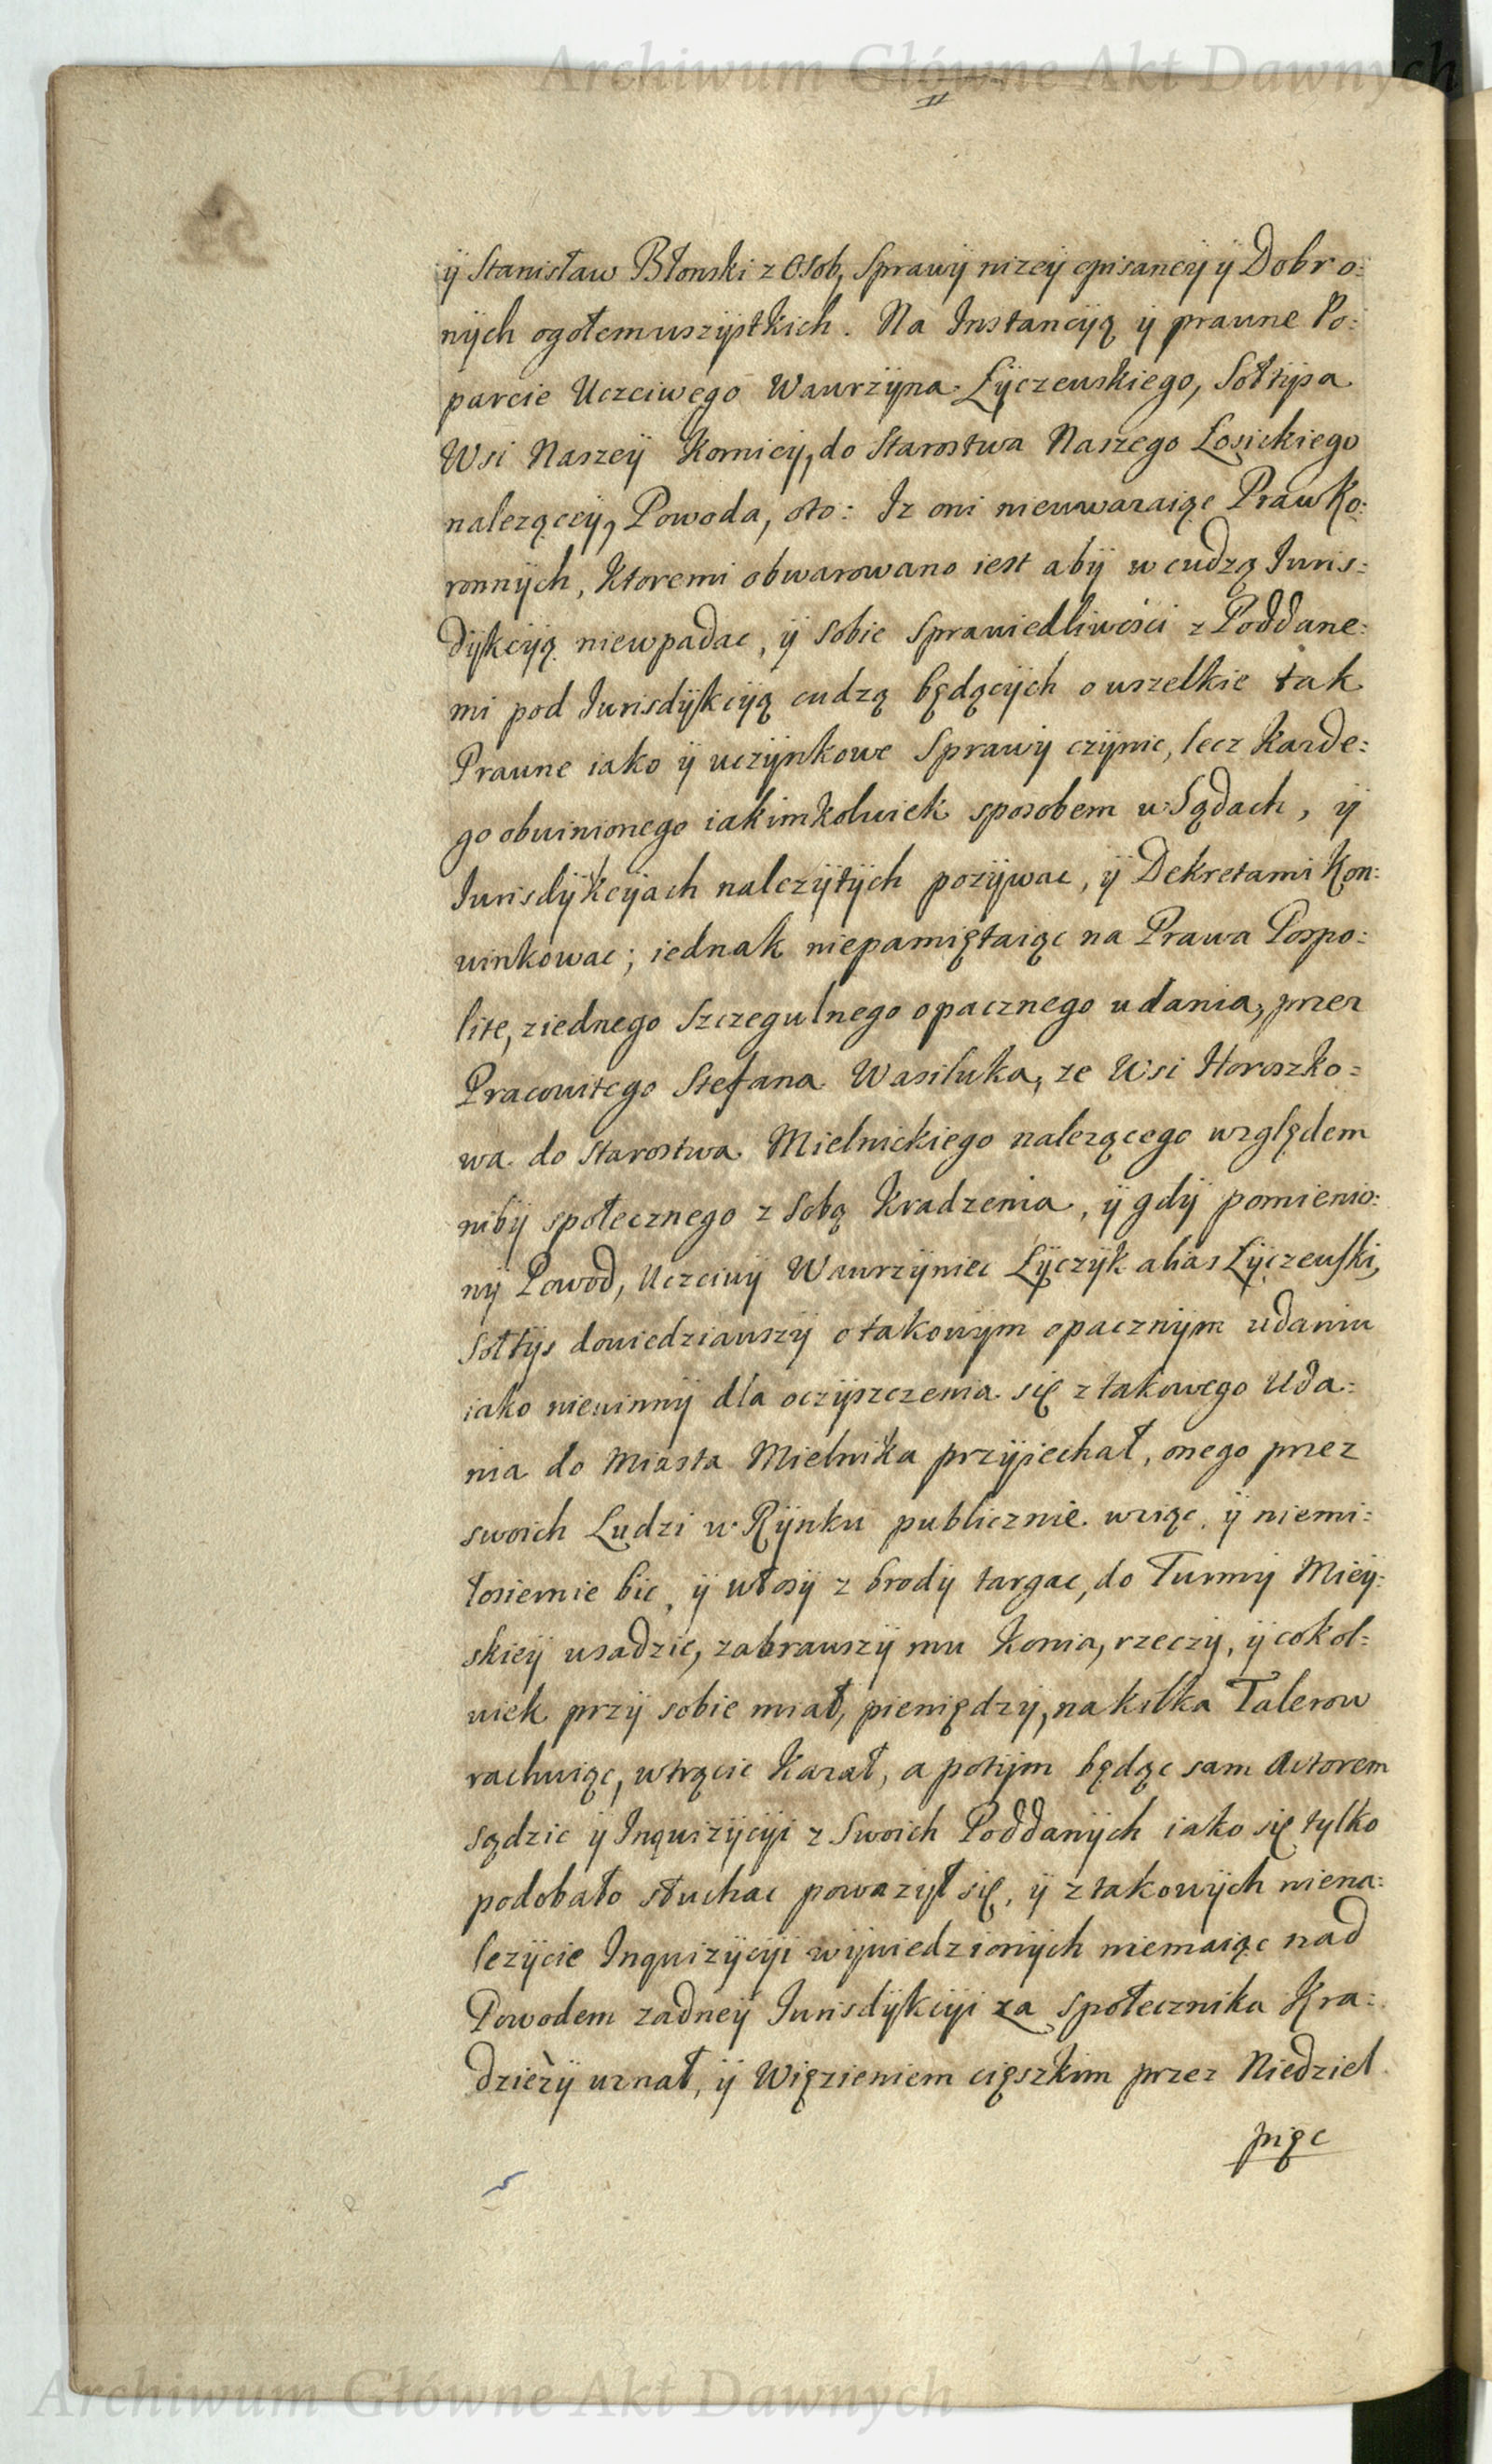 Archiwum Główne Akt Dawnych
II
ÿ Stanisław Błonski z Osob, Sprawÿ nizeÿ opisaneÿ ÿ Dobr o:
nÿch ogołem wszÿstkich. Na Instancÿą ÿ prawne Po:
parcie Uczciwego Wawrzÿna Łÿczewskiego, Sołtÿsa
Wsi Naszeÿ Kornicÿ, do Starostwa Naszego Łosickiego
nalezącęÿ, Powoda, oto: Iz oni nieuwazaiąc Praw Ko:
ronnÿch, Ktoremi obwarowano iest abÿ w cudzą Iuris:
dÿkcÿą niewpadac, ÿ sobie Sprawiedliwości z Poddane:
mi pod Iurisdÿkcÿą cudzą będącÿch o wszelkie tak
Prawne iako ÿ uczÿnkowe Sprawÿ czÿnic, lecz Kazde:
go obwinionego iakimkolwiek sposobem w Sądach, ÿ
Iurisdÿkcÿach nalezÿtÿch pozÿwac, ÿ Dekretami Kon:
winkowac; iednak niepamiętaiąc na Prawa Pospo:
lite, ziednego Szczegulnego opacznego udania, przez
Pracowitego Stefana Wasiluka, ze Wsi Horoszko:
wa do Starostwa Mielnickiego nalezącego względem
nibÿ społecznego z Sobą Kradzenia, ÿ gdÿ pomienio:
nÿ Powod, Uczciwÿ Wawrzÿniec Łÿczÿk alias Łÿczewski,
Sołtÿs dowiedziawszÿ o takowÿm opacznÿm udaniu
iako niewinnÿ dla oczÿszczenia się z takowego Uda:
nia do Miasta Mielnika przÿiechał, onego przez
swoich Ludzi w Rÿnku publicznie wziąc, ÿ niemi:
łosiernie bic, ÿ włosÿ z brodÿ targac, do Turmÿ Mieÿ:
skieÿ wsadzic, zabrawszÿ mu Konia, rzeczÿ, ÿ cokol:
wiek przÿ sobie miał, pieniędzÿ, na kilka Talerow
rachuiąc, wtrącic Kazał, a potÿm będąc sam Actorem
sądzic ÿ Inquizÿcÿi z Swoich Poddanÿch iako się tylko
podobało słuchac powazÿł się, ÿ z takowÿch niena:
lezÿcie Inquizÿcÿi wÿwiedzionÿch niemaiąc nad
Powodem zadneÿ Iurisdÿkcÿi za społecznika Kra:
dziezÿ uznał, ÿ Więzieniem cięszkim przez Niedziel
pięc
Archiwum Główne Akt Dawnych